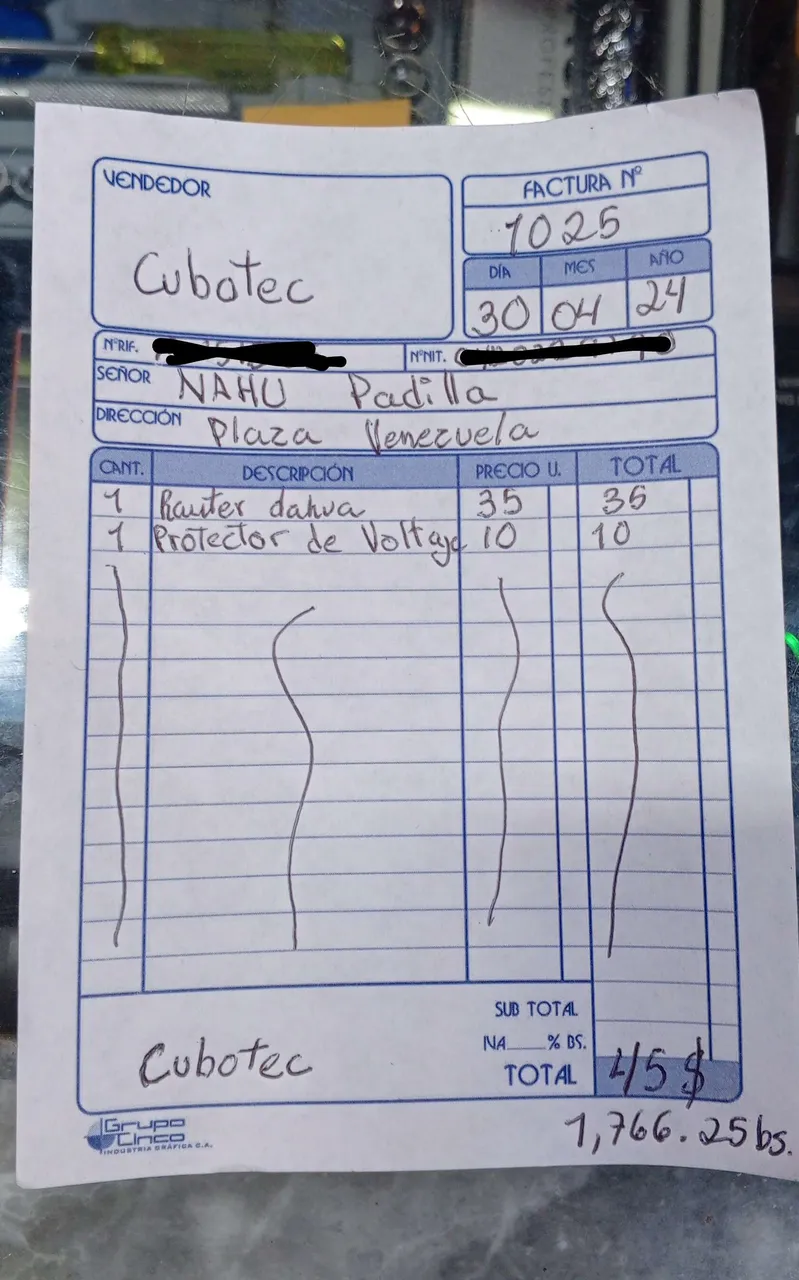 VENDEDOR
Cubotec
FACTURA Nº
1025
DÍA MES AÑO
30 04 24
NºRIF. NºNIT.
SEÑOR NAHU Padilla
DIRECCIÓN Plaza Venezuela
CANT. DESCRIPCIÓN PRECIO U. TOTAL
1 Rauter dahua 35 35
1 Protector de Voltaje 10 10
SUB TOTAL
IVA____% BS.
Cubotec TOTAL 45 $
1,766.25 bs.
Grupo
Cinco
INDUSTRIA GRÁFICA C.A.